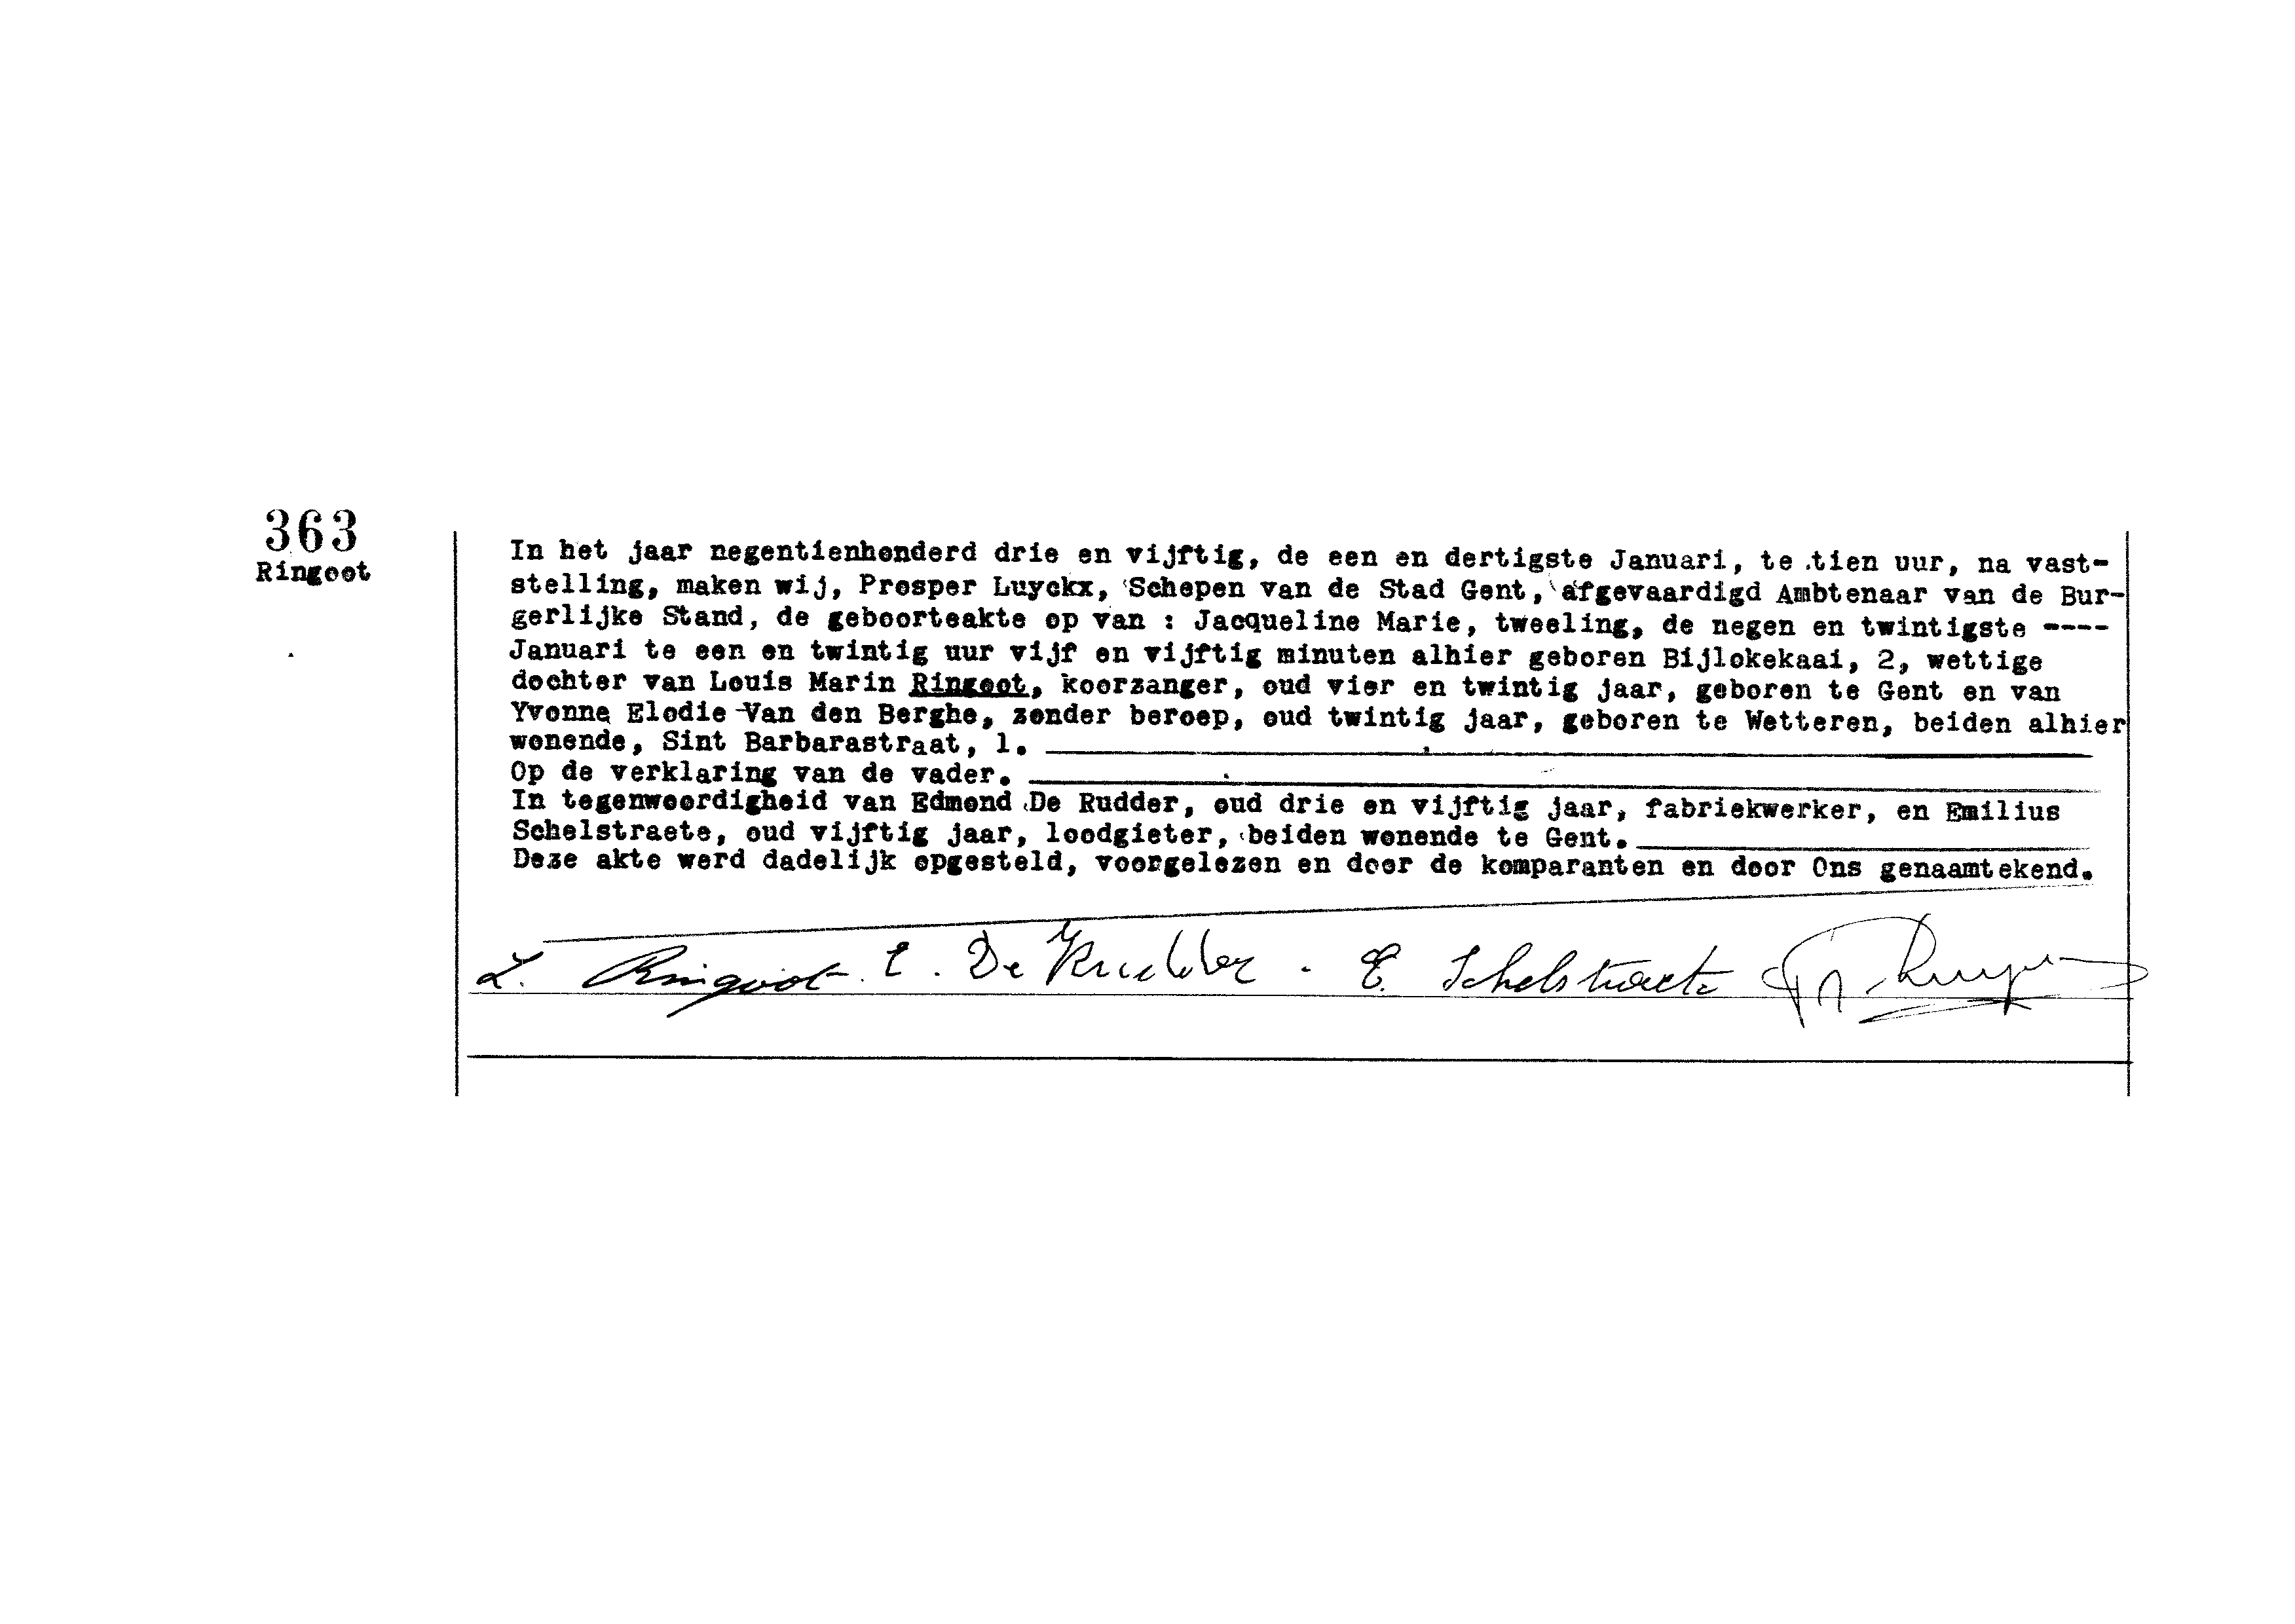 363
Ringoot
In het jaar negentienhonderd drie en vijftig, de een en dertigste Januari, te tien uur, na vast-
stelling, maken wij, Prosper Luyckx, Schepen van de Stad Gent, afgevaardigd Ambtenaar van de Bur-
gerlijke Stand, de geboorteakte op van : Jacqueline Marie, tweeling, de negen en twintigste ----
Januari te een en twintig uur vijf en vijftig minuten alhier geboren Bijlokekaai, 2, wettige
dochter van Louis Marin Ringoot, koorzanger, oud vier en twintig jaar, geboren te Gent en van
Yvonne Elodie Van den Berghe, zonder beroep, oud twintig jaar, geboren te Wetteren, beiden alhier
wonende, Sint Barbarastraat, 1.
Op de verklaring van de vader.
In tegenwoordigheid van Edmond De Rudder, oud drie en vijftig jaar, fabriekwerker, en Emilius
Schelstraete, oud vijftig jaar, loodgieter, beiden wonende te Gent.
Deze akte werd dadelijk opgesteld, voorgelezen en door de komparanten en door Ons genaamtekend.
L. Ringoot. E. De Rudder. E. Schelstraete